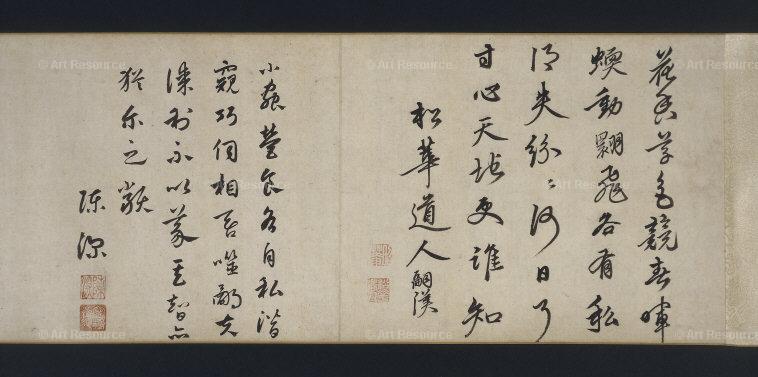 花香草色競春暉
蝡動翾飛各有私
得失紛紛何日了
寸心天地更誰知
松華道人
小蟲營食各自私潛
窺巧伺相吞噬
謀利不以義其智亦
猶尔之
陳深
© Art Resource